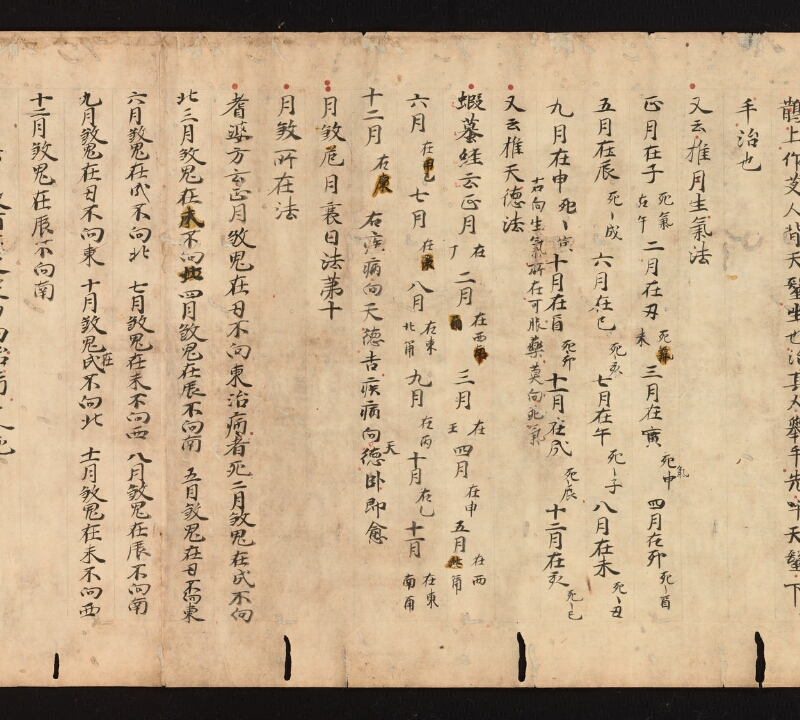 鵲上作芝人背天毉生也治真人舉手先呼天毉下
手治也
又云推月生氣法
正月在子死氣在午二月在丑死氣未三月在寅死氣申四月在卯死〻酉
五月在辰死〻戌六月在巳死〻亥七月在午死〻子八月在未死〻丑
九月在申死〻寅十月在酉死卯十一月在戌死〻辰十二月在亥死〻巳
右向生氣所在可服藥莫向死氣
又云推天德法
蝦蟇經云正月在丁二月在西三月在王四月在申五月在西
六月在七月在八月在東北角九月在丙十月在乙十一月在東南角
十二月在庚右疾病向天德吉疾病向天德卧即愈
月煞厄月衰日法第十
月煞所在法
耆婆方云正月煞鬼在丑不向東治病者死二月煞鬼在戌不向
北三月煞鬼在未不向四月煞鬼在辰不向南五月煞鬼在丑不向東
六月煞鬼在戌不向北七月煞鬼在未不向西八月煞鬼在辰不向南
九月煞鬼在丑不向東十月煞鬼在戌不向北十一月煞鬼在未不向西
十二月煞鬼在辰不向南